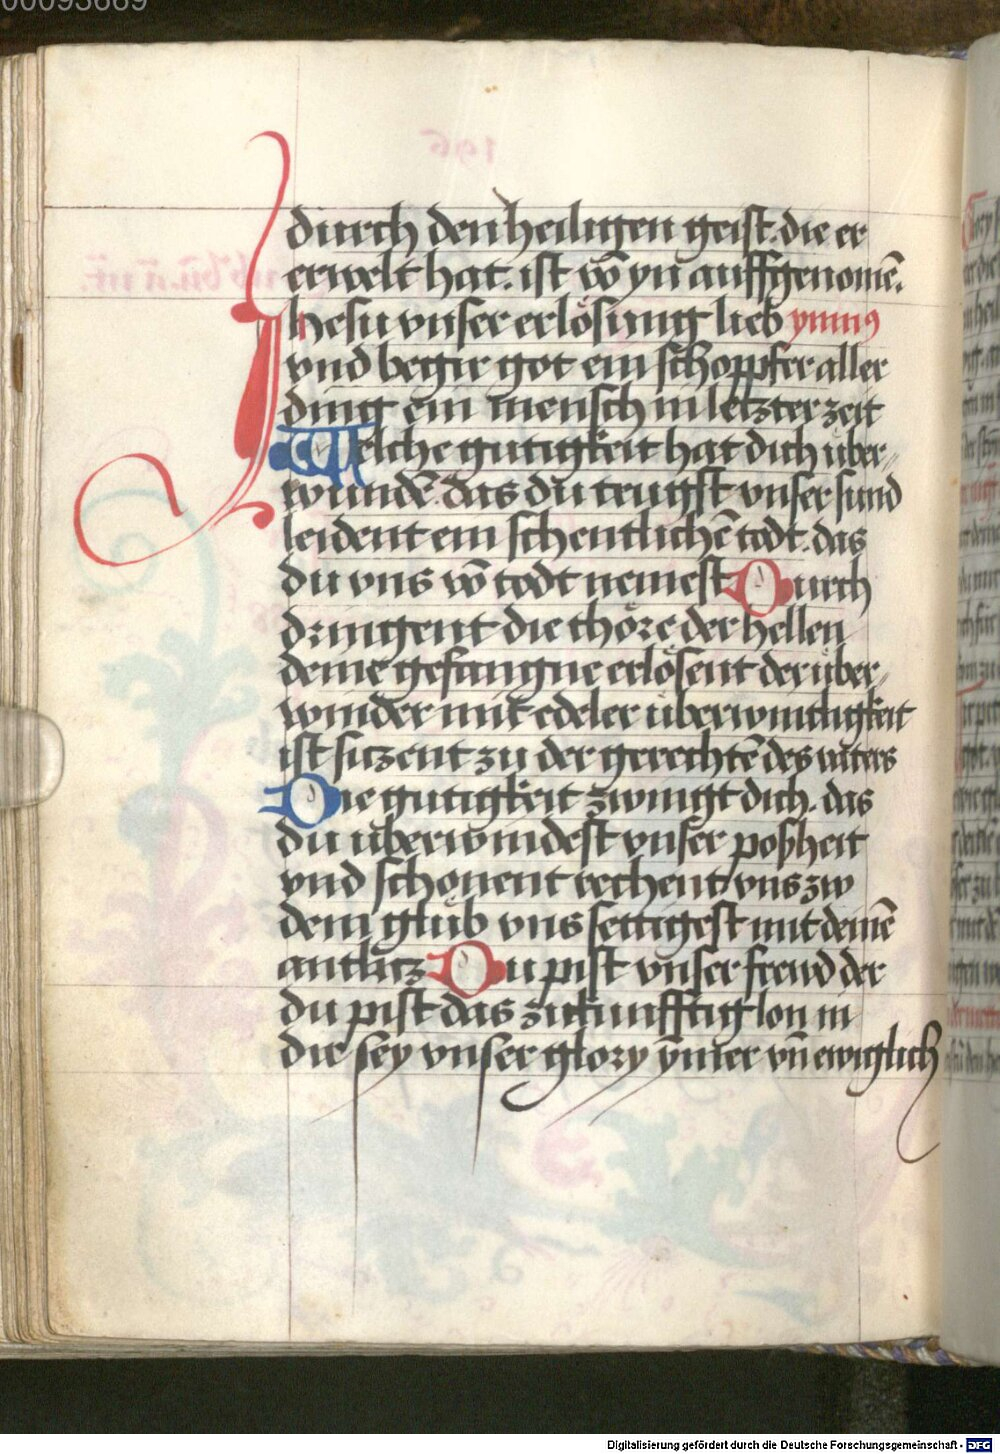 00093669
durch den heiligen geist. die er
erwelt hat. ist vō yn auffgenomē.
Ihesu vnser erlösung lieb ymnus
vnd begir got ein schoppfer aller
ding ein mensch in letzter zeit
Welche gutigkeit hat dich über⸗
wundē. das du trugst vnser sund
leident ein schentlichē todt. das
du vns vō todt nemest Durch
dringent die thöre der hellen
deine gefangne erlösent der über⸗
winder mit edeler überwintligkeit
ist siczent zu der gerechtē des vaters
Die gutigkeit zwingt dich. das
du überwindest vnser poßheit
vnd schonent rechent vns zw
dem glüb vns settigest mit deinē
antlitz Du pist vnser freud der
du pist das zukunfftig lon in
die sey vnser glory ymer vn̄ ewiglich
Digitalisierung gefördert durch die Deutsche Forschungsgemeinschaft - DFG